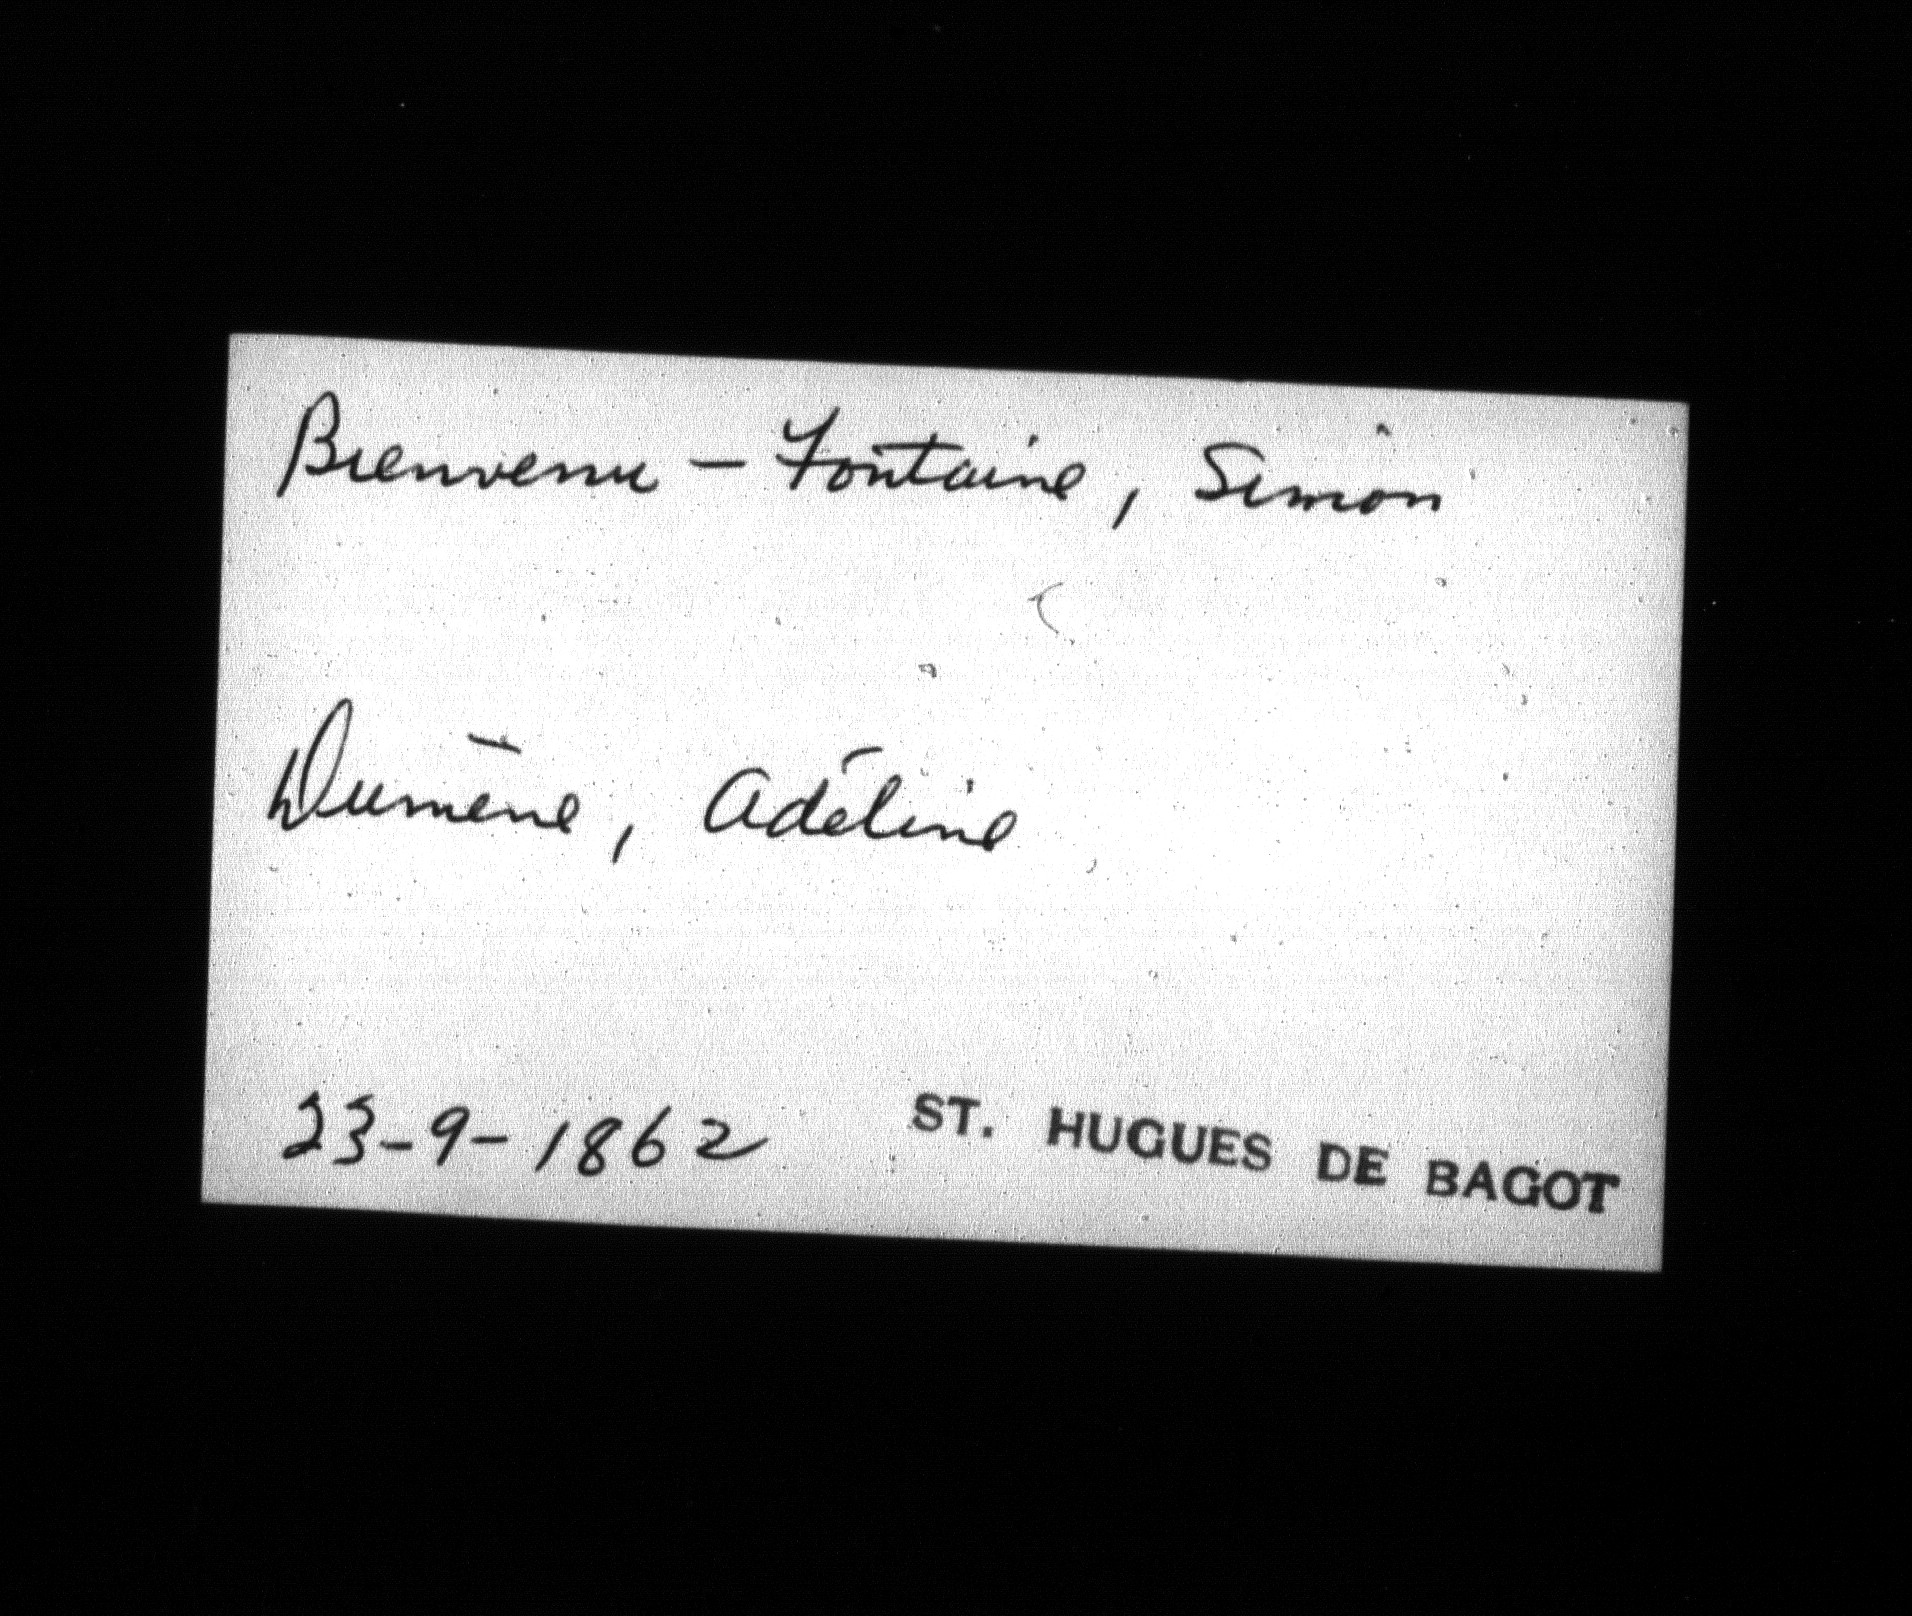 Bienvenu - Fontaine, Simon
Dumène, Adéline
23-9-1862 ST. HUGUES DE BAGOT